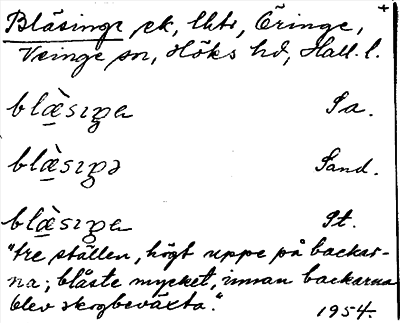 Bläsinge ek, lht, Öringe, +
Veinge sn, Höks hd, Hall. l.
blæ̀sıŋa Sa.
blæ̀sıŋə Sand.
blæ̀sıŋa St.
"tre ställen, högt uppe på backar-
na; blåste mycket, innan backarna
blev skogbeväxta."
1954.